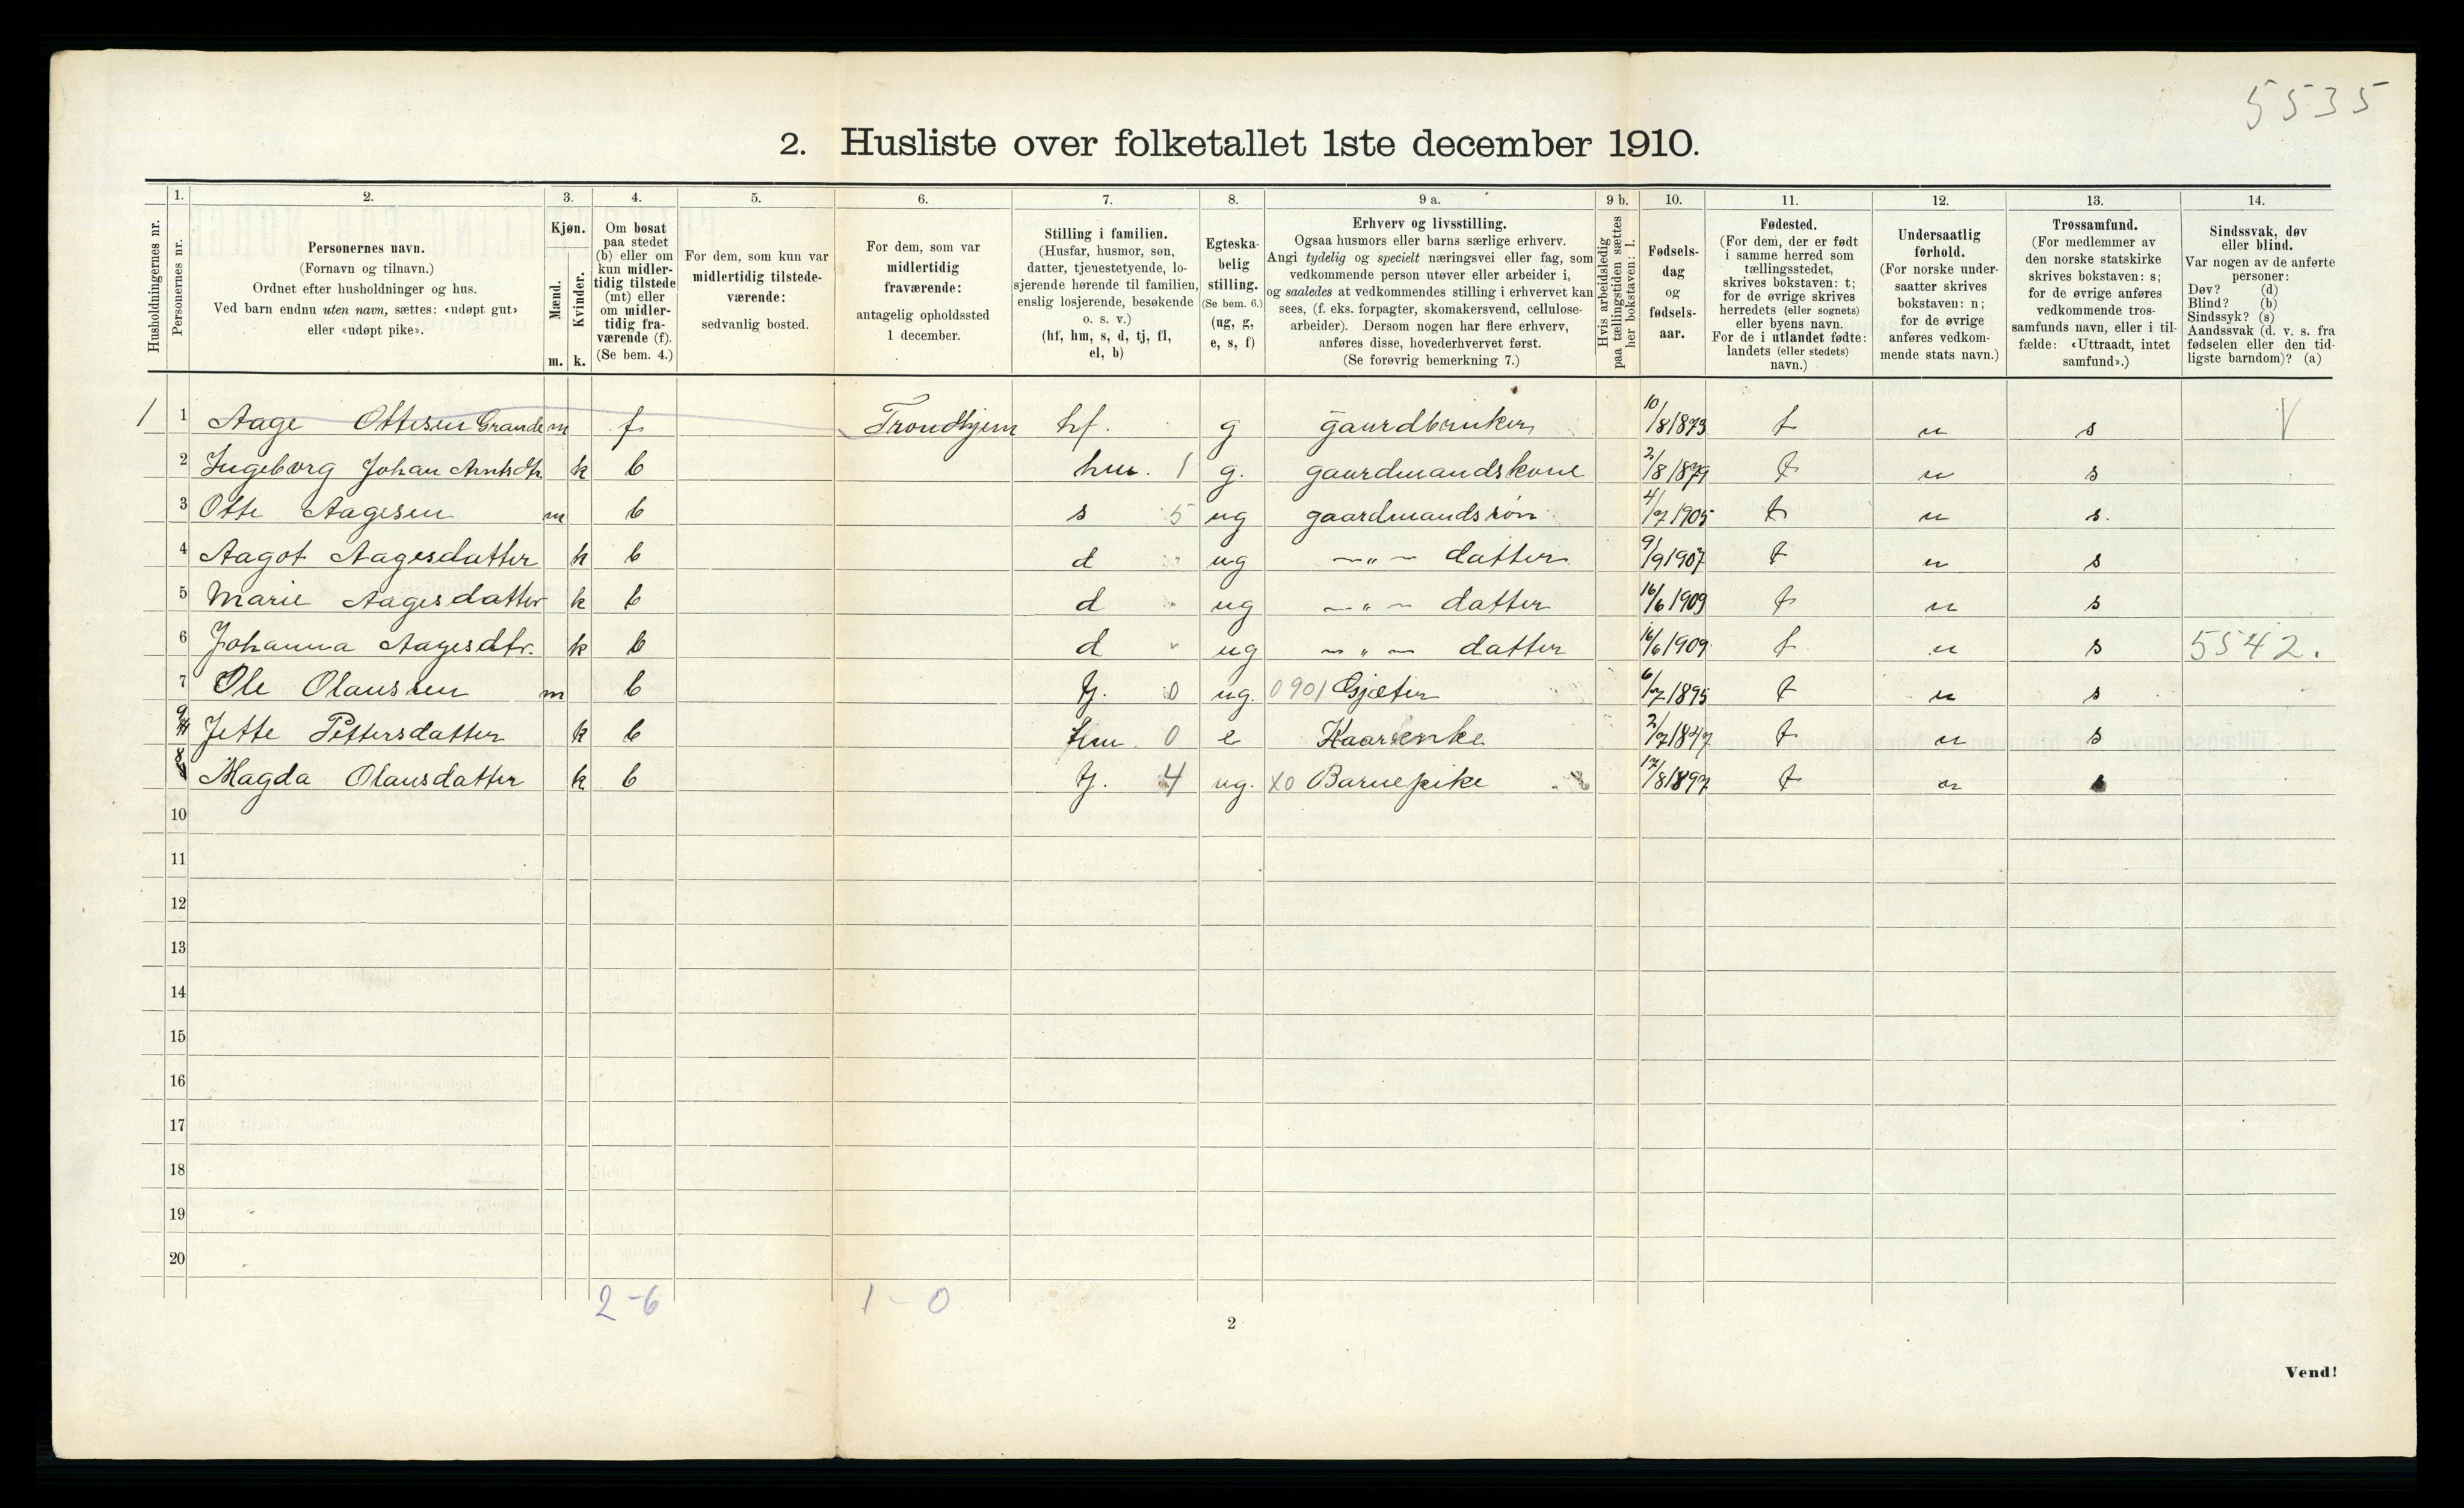 5535
2. Husliste over folketallet 1ste december 1910.
1. 2. 3. 4. 5. 6. 7. 8. 9 a. 9 b. 10. 11. 12. 13. 14.
Husholdningernes nr.
Personernes nr.
Personernes navn.
(Fornavn og tilnavn.)
Ordnet efter husholdninger og hus.
Ved barn endnu uten navn, sættes: «udøpt gut»
eller «udøpt pike».
Kjøn.
Mænd.
Kvinder.
m. k.
Om bosat
paa stedet
(b) eller om
kun midler-
tidig tilstede
(mt) eller
om midler-
tidig fra-
værende (f).
(Se bem. 4.)
For dem, som kun var
midlertidig tilstede-
værende:
sedvanlig bosted.
For dem, som var
midlertidig
fraværende:
antagelig opholdssted
1 december.
Stilling i familien.
(Husfar, husmor, søn,
datter, tjenestetyende, lo-
sjerende hørende til familien,
enslig losjerende, besøkende
o. s. v.)
(hf, hm, s, d, tj, fl,
el, b)
Egteska-
belig
stilling.
(Se bem. 6.)
(ug, g,
e, s, f)
Erhverv og livsstilling.
Ogsaa husmors eller barns særlige erhverv.
Angi tydelig og specielt næringsvei eller fag, som
vedkommende person utøver eller arbeider i,
og saaledes at vedkommendes stilling i erhvervet kan
sees, (f. eks. forpagter, skomakersvend, cellulose-
arbeider). Dersom nogen har flere erhverv,
anføres disse, hovederhvervet først.
(Se forøvrig bemerkning 7.)
Hvis arbeidsledig
paa tællingstiden sættes
her bokstaven: l.
Fødsels-
dag
og
fødsels-
aar.
Fødested.
(For dem, der er født
i samme herred som
tællingsstedet,
skrives bokstaven: t;
for de øvrige skrives
herredets (eller sognets)
eller byens navn.
For de i utlandet fødte:
landets (eller stedets)
navn.)
Undersaatlig
forhold.
(For norske under-
saatter skrives
bokstaven: n;
for de øvrige
anføres vedkom-
mende stats navn.)
Trossamfund.
(For medlemmer av
den norske statskirke
skrives bokstaven: s;
for de øvrige anføres
vedkommende tros-
samfunds navn, eller i til-
fælde: «Uttraadt, intet
samfund».)
Sindssvak, døv
eller blind.
Var nogen av de anførte
personer:
Døv? (d)
Blind? (b)
Sindssyk? (s)
Aandssvak (d. v. s. fra
fødselen eller den tid-
ligste barndom)? (a)
1 1 Aage Ottesen Grande m f Trondhjem hf. g gaardbruker 10/8 1873 t n s V
2 Ingeborg Johan Arntsdtr. k b hm. 1 g. gaardmandskone 2/8 1879 t n s
3 Otte Aagesen m b s 5 ug gaardmandssøn 4/7 1905 t n s.
4 Aagot Aagesdatter k b d " ug —"— datter 9/9 1907 t n s
5 Marie Aagesdatter k b d " ug —"— datter 16/6 1909 t n s
6 Johanna Aagesdtr. k b d " ug —"— datter 16/6 1909 t n s 5542.
7 Ole Olaussen m b tj. 0 ug. 0901 Gjæter 6/7 1895 t n s
9 Jette Pettersdatter k b hm. 0 e Kaarenke 2/7 1847 t n s
8 Magda Olausdatter k b tj. 4 ug. X0 Barnepike 17/8 1897 t n s
10
11
12
13
14
15
16
17
18
19
20
2-6 1-0
2
Vend!